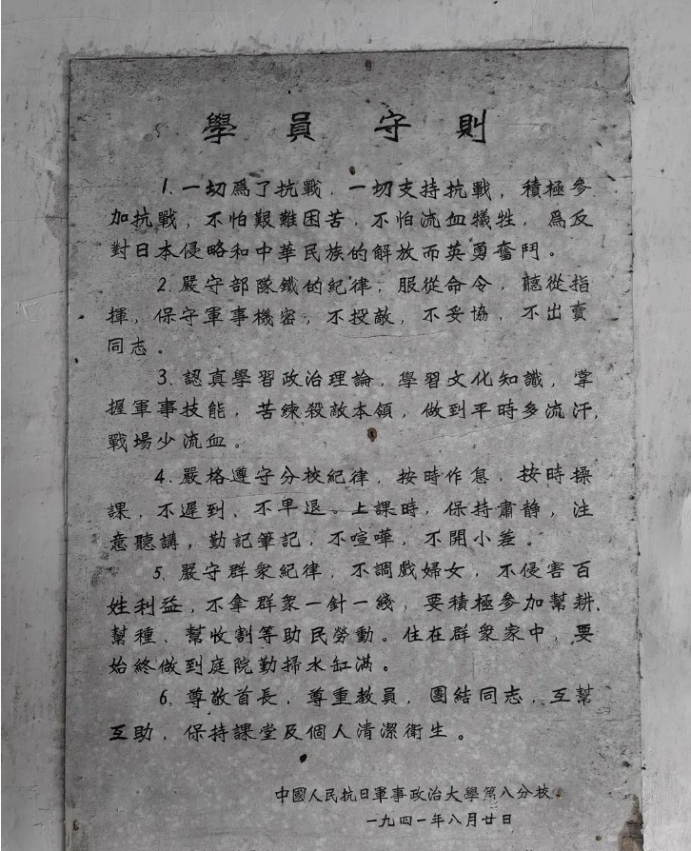 學員守則
1. 一切爲了抗戰，一切支持抗戰，積極參
加抗戰，不怕艱難困苦，不怕流血犧牲，爲反
對日本侵略和中華民族的解放而英勇奮鬥。
2. 嚴守部隊鐵的紀律，服從命令，聽從指
揮，保守軍事機密，不投敵，不妥協，不出賣
同志。
3. 認真學習政治理論，學習文化知識，掌
握軍事技能，苦練殺敵本領，做到平時多流汗，
戰場少流血。
4. 嚴格遵守分校紀律，按時作息，按時操
課，不遲到、不早退。上課時，保持肅靜，注
意聽講，勤記筆記，不喧嘩，不開小差。
5. 嚴守群衆紀律，不調戲婦女，不侵害百
姓利益，不拿群衆一針一綫，要積極參加幫耕、
幫種、幫收割等助民勞動。住在群衆家中，要
始終做到庭院勤掃水缸滿。
6. 尊敬首長，尊重教員，團結同志，互幫
互助，保持課堂及個人清潔衛生。
中國人民抗日軍事政治大學第八分校
一九四一年八月廿日